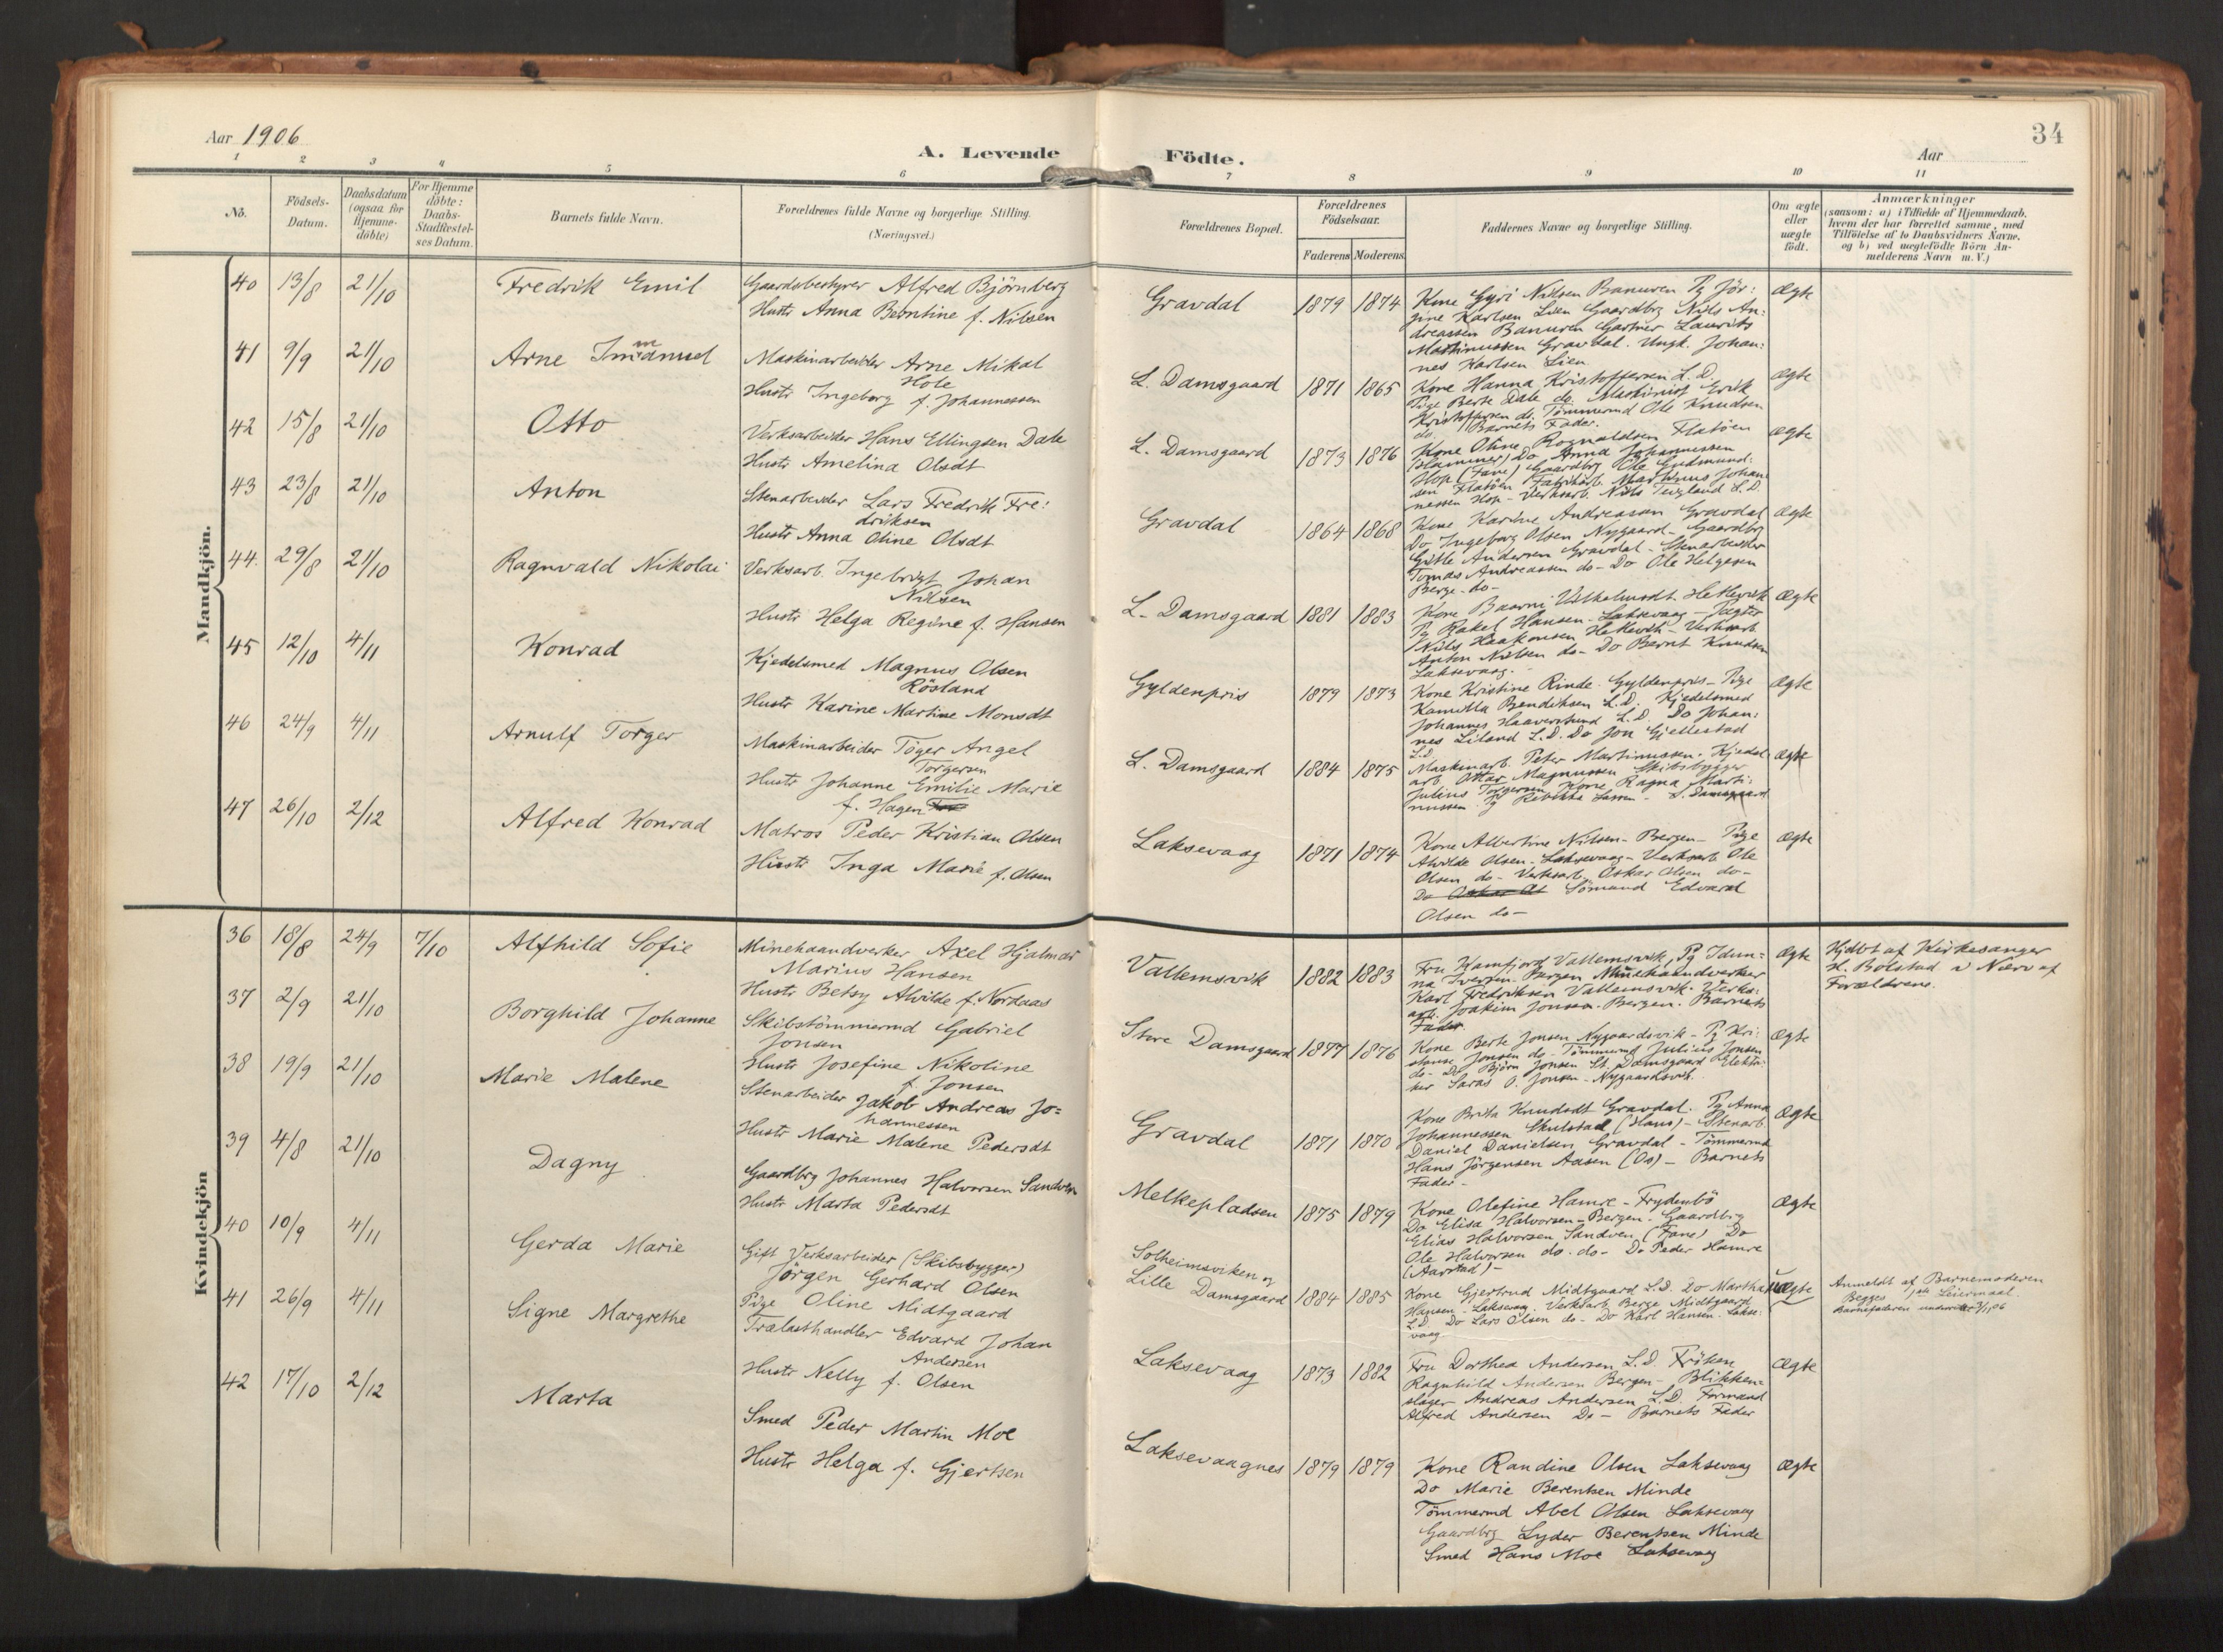 34
Aar 1906
A. Levende Födte.
Aar
1 2 3 4 5 6 7 8 9 10 11
No.
Födsels-
Datum.
Daabsdatum
(ogsaa for
Hjemme-
döbte)
For Hjemme
döbte:
Daabs-
Stadfæstel-
ses Datum.
Barnets fulde Navn.
Forældrenes fulde Navne og borgerlige Stilling.
(Næringsvei.)
Forældrenes Bopæl.
Forældrenes
Födselsaar.
Faderens Moderens
Faddernes Navne og borgerlige Stilling.
Om ægte
eller
uægte
födt.
Anmærkninger
(saasom: a) i Tilfælde af Hjemmedaab,
hvem der har forrettet samme, med
Tilföielse af to Daabsvidners Navne,
og b) ved uægtefödte Börn An-
melderens Navn m. V.)
Mandkjön.
40 13/8 21/10 Fredrik Emil
Gaardsbestyrer Alfred Björnberg
Hustr Anna Berntine f. Nilsen
Gravdal 1879 1874
Kone Gyri Nilsen Banuren Pg Jör:
gine Karlsen Lien Gaardbrg Nils An:
dreassen Banuren Gartner Laurits
Martinussen Gravdal. Ungk. Johan:
nes Karlsen Lien
Ægte
41 9/9 21/10 Arne Immanuel
Maskinarbeider Arne Mikal
Hole
Hustr Ingeborg f. Johannessen
L. Damsgaard 1871 1865
Kone Hanna Kristoffersen L. D.
Pige Berte Dale do. Maskinist Erik
Kristoffersen do. Tömmermd Ole Knudsen
do. Barnets Fader.
Ægte
42 15/8 21/10 Otto
Verksarbeider Hans Ellingsen Dale
Hustr Amelina Olsdt
L. Damsgaard 1873 1876
Kone Oline Rognaldsen Flatöen
(Hammer) Do Anna Johannessen
Hop (Fane) Gaardbrg Ole Gudmund:
sen Flatöen Fabrikarb. Martinus Johan
nessen Hop - Verksarb. Nils Teigland L. D.
Ægte
43 23/8 21/10 Anton
Stenarbeider Lars Fredrik Fre:
driksen
Hustr Anna Oline Olsdt
Gravdal 1864 1868
Kone Karine Andreasen Gravdal
Do Ingeborg Olsen Nygaard - Gaardbrg
Gitle Andersen Gravdal - Stenarbeider
Tomas Andreassen do - Do Ole Helgesen
Berge - do -
Ægte
44. 29/8 21/10 Ragnvald Nikolai
Verksarb. Ingebrigt Johan
Nilsen
Hustr Helga Regine f. Hansen
L. Damsgaard 1881 1883
Kone Vilhelmsdt. Hetlevik
Pg Rakel Hansen - Laksevaag -
Nils Haakonsen Hetlevik - Verksarb
Anton Nilsen do - Do Bernt Knudsen
Laksevaag.
Ægte
45 12/10 4/11 Konrad
Kjedelsmed Magnus Olsen
Rösland
Hustr Karine Martine Monsdt
Gyldenpris 1879 1873
Kone Kristine Rinde - Gyldenpris - Pige
Kamilla Bendiksen L. D. Kjedelsmed
Johannes L. D. Do Johan:
nes Liland L. D. Do Jon Gjellestad
L. D.
Ægte
46 24/9 4/11 Arnulf Torger
Maskinarbeider Töger Angel
Torgersen
Hustr Johanne Emilie Marie
f. Hagen
L. Damsgaard 1884 1875
Maskinarb. Peter Martinussen. Kjedel
arb Ottar Magnussen Skibsbygger
Julius Torgersen Kone Ragna Marti:
nussen Pg Rebekka - L. Damsgaard
Ægte
47 26/10 2/12 Alfred Konrad
Matros Peder Kristian Olsen
Hustr Inga Marie f. Olsen
Laksevaag 1871 1874
Kone Albertine Nilsen - Bergen - Pige
Alvilde Olsen - Laksevaag - Verksarb Ole
Olsen do - Verksarb. Oskar Olsen do -
Do Sömand Edvard
Olsen do -
Ægte
Kvindekjön
36 18/8 24/9 7/10 Alfhild Sofie
Minehaandverker Axel Hjalmar
Marius Hansen
Hustr Betsy Alvilde f. Nordaas
Vallemsvik 1882 1883
Fru Kamfjord Vallemsvik, Pg Idun:
na Iversen - Bergen Minehaandverker
Karl Fredriksen Vallemsvik - Verks:
arb. Joakim Jonsen - Bergen - Barnets
Fader.
Ægte
Hjdbt af Kirkesanger
H. Bolstad i Nærv af
Forældrene.
37 2/9 21/10 Borghild Johanne
Skibstömmermd Gabriel
Jonsen
Hustr Josefine Nikoline
f. Jonsen
Store Damsgaard 1877 1876
Kone Berte Jonsen Nygaardsvik - Pg Kri:
stense Jonsen do - Tömmermd Julius Jonsen
do - Do Björn Jonsen St. Damsgaard Elektri:
ker Saras O. Jonsen - Nygaardsvik.
Ægte
38 19/9 21/10 Marie Malene
Stenarbeider Jakob Andreas Jo=
hannessen
Hustr Marie Malene Pedersdt
Gravdal 1871 1870
Kone Brita Knudsdt Gravdal. Pg Anna
Johannessen Skulstad (Haus) - Stenarb.
Daniel Danielsen Gravdal - Tömmermd
Hans Jörgensen Aasen (Os) - Barnets
Fader -
Ægte
39 4/8 21/10 Dagny
Gaardbrg Johannes Halvorsen Sandven
Hustr Marta Pedersdt
Melkepladsen 1875 1879
Kone Olefine Hamre - Frydenbö
Do Elisa Halvorsen - Bergen - Gaardbrg
Elias Halvorsen Sandven (Fane) Do
Ole Halvorsen do. do - Do Peder Hamre
(Aarstad) -
Ægte
40 10/9 4/11 Gerda Marie
Gift Verksarbeider (Skibsbygger)
Jörgen Gerhard Olsen
Pige Oline Midtgaard
Solheimsviken og
Lille Damsgaard 1884 1885
Kone Gjertrud Midtgaard L. D. Do Martha
Hansen - Laksevaag. Verksarb Berge Midtgaard
L. D. Do Lars Olsen do - Do Karl Hansen. Lakse:
vaag
Uægte
Anmeldt af Barnemoderen
Begges Leiermaal.
Barnefaderen
41 26/9 4/11 Signe Margrethe
Trælasthandler Edvard Johan
Andersen
Hustr Nelly f. Olsen
Laksevaag 1873 1882
Fru Dorthea Andersen L. D. Fröken
Ragnhild Andersen Bergen - Blikken=
slager Andreas Andersen L. D. Formand
Alfred Andersen Do - Barnets Fader
Ægte
42 17/10 2/12 Marta
Smed Peder Martin Moe
Hustr Helga f. Gjertsen
Laksevaagnes 1879 1879
Kone Randine Olsen Laksevaag
Do Marie Berentsen Minde
Tömmermd Abel Olsen Laksevaag
Gaardbrg Lyder Berentsen Minde
Smed Hans Moe Laksevaag
Ægte